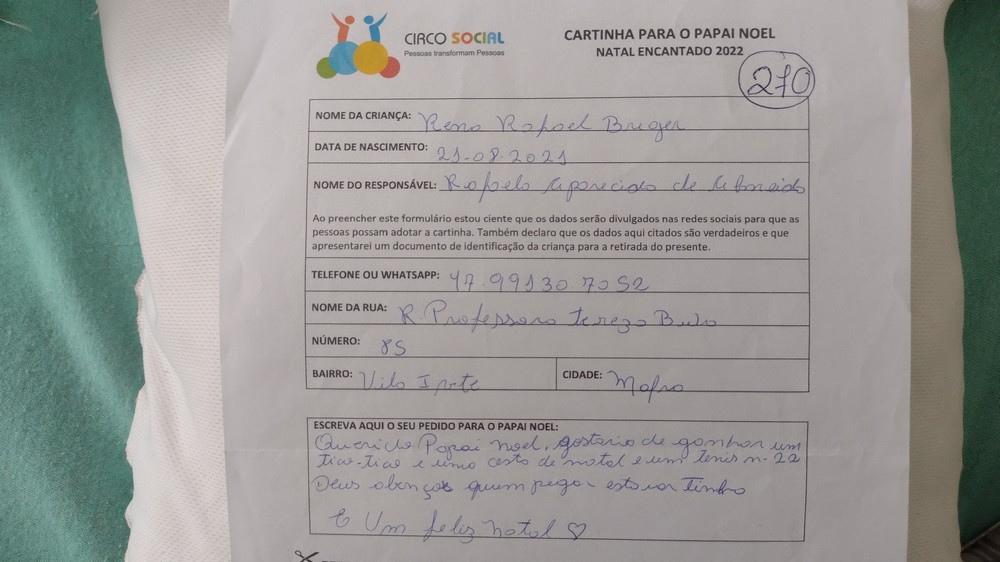 CIRCO SOCIAL
Pessoas transformam Pessoas
CARTINHA PARA O PAPAI NOEL
NATAL ENCANTADO 2022
270
NOME DA CRIANÇA: Rafael
DATA DE NASCIMENTO: 21-08-2021
NOME DO RESPONSÁVEL: Rafela Aparecida de Almeida
Ao preencher este formulário estou ciente que os dados serão divulgados nas redes sociais para que as
pessoas possam adotar a cartinha. Também declaro que os dados aqui citados são verdadeiros e que
apresentarei um documento de identificação da criança para a retirada do presente.
TELEFONE OU WHATSAPP: 47 99130 7052
NOME DA RUA: R. Professora Tereza
NÚMERO: 85
BAIRRO: Vila
CIDADE: Mafra
ESCREVA AQUI O SEU PEDIDO PARA O PAPAI NOEL:
Querido Papai Noel, gostaria de ganhar um
tico-tico e uma cesta de natal e um tenis n- 22
Deus quem pegar
E Um feliz natal